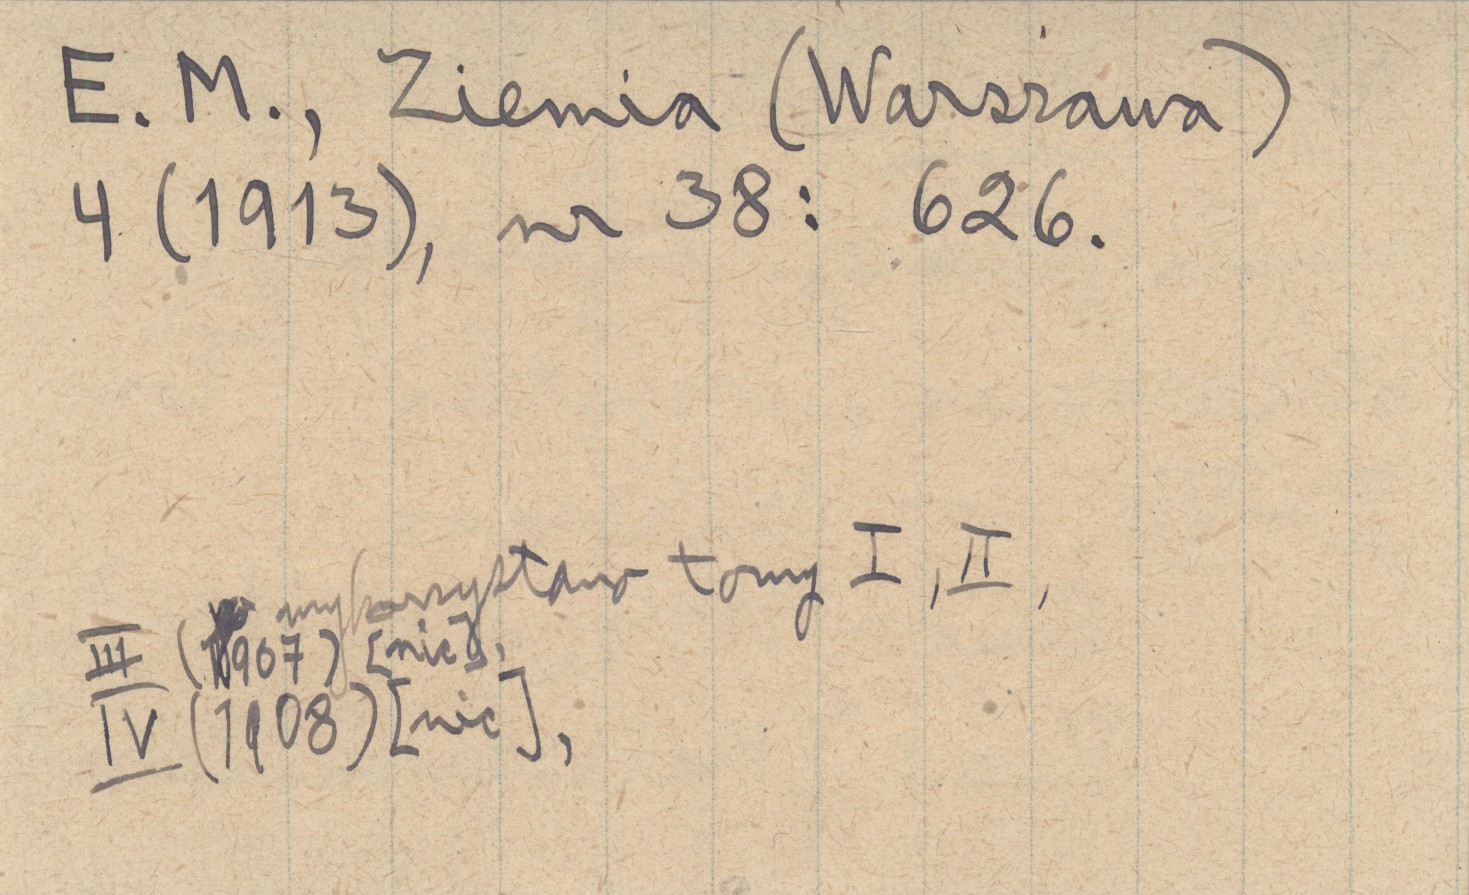 E. M., Ziemia (Warszawa)
4 (1913), nr 38: 626.
wykorzystano tomy I, II,
III (1907) [nic],
IV (1908) [nic],